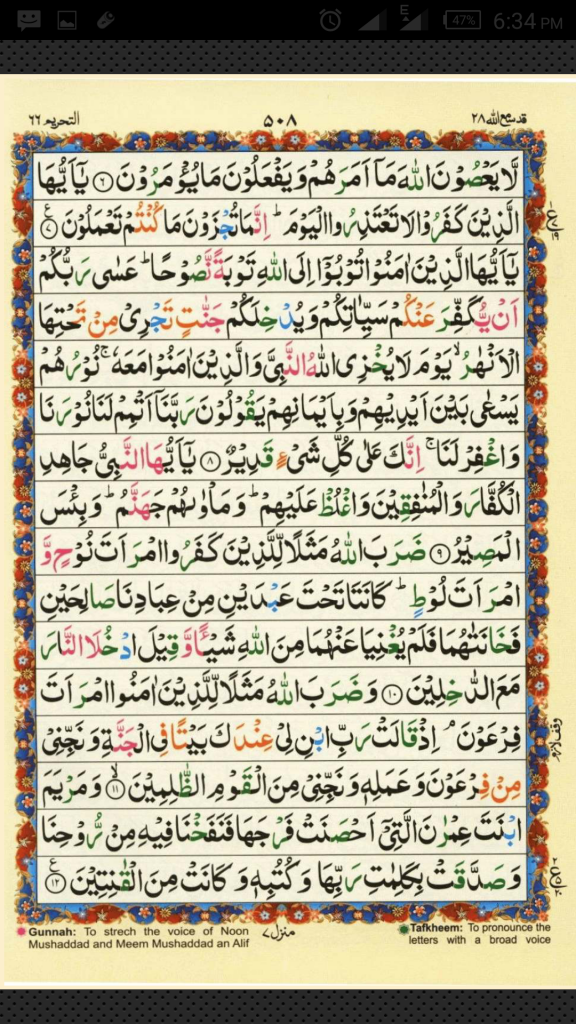 47% 6:34 PM
التحريم ٦٦
٥٠٨
قد سمع الله ٢٨
لَّا يَعْصُوْنَ اللّٰهَ مَآ اَمَرَهُمْ وَيَفْعَلُوْنَ مَا يُؤْمَرُوْنَ ﴿٦﴾ يٰٓاَيُّهَا
الَّذِيْنَ كَفَرُوْا لَا تَعْتَذِرُوا الْيَوْمَ ؕ اِنَّمَا تُجْزَوْنَ مَا كُنْتُمْ تَعْمَلُوْنَ ﴿٧﴾ ع
يٰٓاَيُّهَا الَّذِيْنَ اٰمَنُوْا تُوْبُوْٓا اِلَى اللّٰهِ تَوْبَةً نَّصُوْحًا ؕ عَسٰى رَبُّكُمْ
اَنْ يُّكَفِّرَ عَنْكُمْ سَيِّاٰتِكُمْ وَيُدْخِلَكُمْ جَنّٰتٍ تَجْرِيْ مِنْ تَحْتِهَا
الْاَنْهٰرُ ۙ يَوْمَ لَا يُخْزِى اللّٰهُ النَّبِيَّ وَالَّذِيْنَ اٰمَنُوْا مَعَهٗ ۚ نُوْرُهُمْ
يَسْعٰى بَيْنَ اَيْدِيْهِمْ وَبِاَيْمَانِهِمْ يَقُوْلُوْنَ رَبَّنَآ اَتْمِمْ لَنَا نُوْرَنَا
وَاغْفِرْ لَنَا ۚ اِنَّكَ عَلٰى كُلِّ شَيْءٍ قَدِيْرٌ ﴿٨﴾ يٰٓاَيُّهَا النَّبِيُّ جَاهِدِ
الْكُفَّارَ وَالْمُنٰفِقِيْنَ وَاغْلُظْ عَلَيْهِمْ ؕ وَمَاْوٰىهُمْ جَهَنَّمُ ؕ وَبِئْسَ
الْمَصِيْرُ ﴿٩﴾ ضَرَبَ اللّٰهُ مَثَلًا لِّلَّذِيْنَ كَفَرُوا امْرَاَتَ نُوْحٍ وَّ
امْرَاَتَ لُوْطٍ ؕ كَانَتَا تَحْتَ عَبْدَيْنِ مِنْ عِبَادِنَا صَالِحَيْنِ
فَخَانَتٰهُمَا فَلَمْ يُغْنِيَا عَنْهُمَا مِنَ اللّٰهِ شَيْـًٔا وَّقِيْلَ ادْخُلَا النَّارَ
مَعَ الدّٰخِلِيْنَ ﴿١٠﴾ وَضَرَبَ اللّٰهُ مَثَلًا لِّلَّذِيْنَ اٰمَنُوا امْرَاَتَ
فِرْعَوْنَ ۘ اِذْ قَالَتْ رَبِّ ابْنِ لِيْ عِنْدَكَ بَيْتًا فِى الْجَنَّةِ وَنَجِّنِيْ
مِنْ فِرْعَوْنَ وَعَمَلِهٖ وَنَجِّنِيْ مِنَ الْقَوْمِ الظّٰلِمِيْنَ ۙ﴿١١﴾ وَمَرْيَمَ
ابْنَتَ عِمْرٰنَ الَّتِيْٓ اَحْصَنَتْ فَرْجَهَا فَنَفَخْنَا فِيْهِ مِنْ رُّوْحِنَا
وَصَدَّقَتْ بِكَلِمٰتِ رَبِّهَا وَكُتُبِهٖ وَكَانَتْ مِنَ الْقٰنِتِيْنَ ﴿١٢﴾ ع
وقف لازم
Gunnah: To strech the voice of Noon
Mushaddad and Meem Mushaddad an Alif
منزل ٧
Tafkheem: To pronounce the
letters with a broad voice